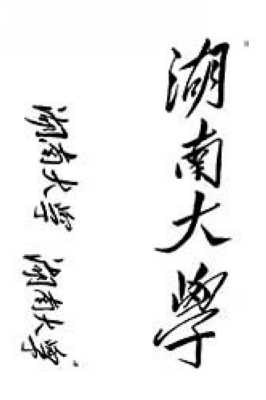 湖南大學
湖南大學
湖南大學